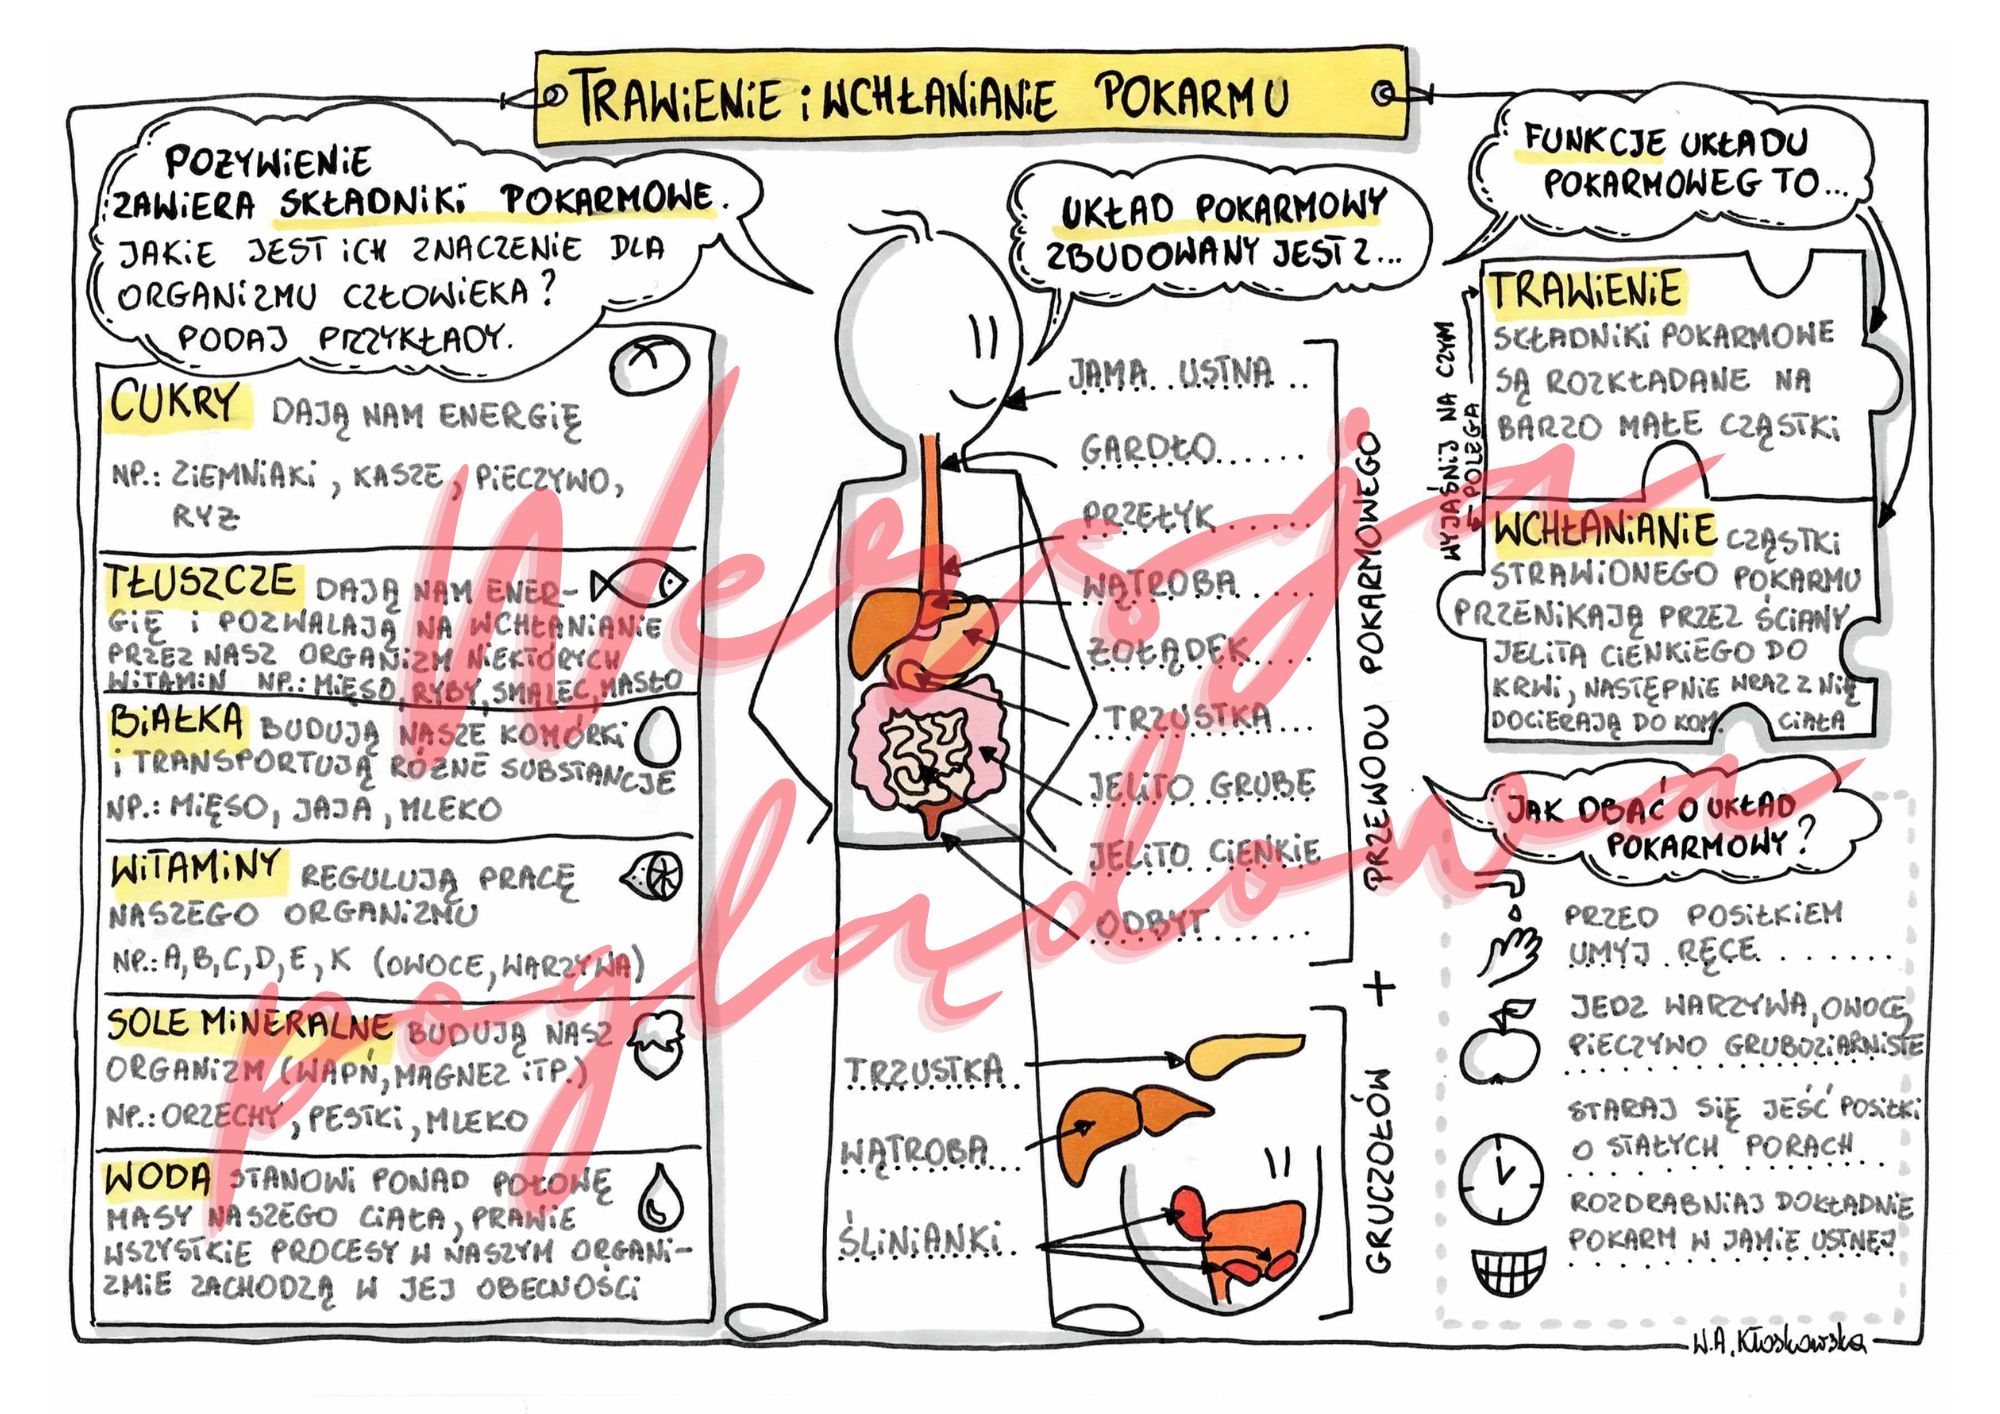 TRAWiENiE i WCHŁANiANiE POKARMU
POZYWiENiE
ZAWiERA SKŁADNiKi POKARMOWE.
JAKiE JEST iCH ZNACZENiE DLA
ORGANiZMU CZŁOWiEKA?
PODAJ PRZYKŁADY.
CUKRY DAJĄ NAM ENERGiĘ
NP.: ZiEMNiAKi, KASZE, PiECZYWO,
RYZ
TŁUSZCZE DAJĄ NAM ENER-
GiĘ i POZWALAJĄ NA WCHŁANiANiE
PRZEZ NASZ ORGANiZM NiEKTÓRYCH
WiTAMiN NP.: MiĘSO, RYBY, SMALEC, MASŁO
BiAŁKA BUDUJĄ NASZE KOMÓRKi
i TRANSPORTUJĄ RÓŻNE SUBSTANCJE
NP.: MiĘSO, JAJA, MLEKO
WiTAMiNY REGULUJĄ PRACĘ
NASZEGO ORGANiZMU
NP.: A, B, C, D, E, K (OWOCE, WARZYWA)
SOLE MiNERALNE BUDUJĄ NASZ
ORGANiZM (WAPŃ, MAGNEZ iTP.)
NP.: ORZECHY, PESTKi, MLEKO
WODA STANOWi PONAD POŁOWĘ
MASY NASZEGO CiAŁA, PRAWiE
WSZYSTKiE PROCESY W NASZYM ORGANi-
ZMiE ZACHODZĄ W JEJ OBECNOŚCi
UKŁAD POKARMOWY
ZBUDOWANY JEST Z...
JAMA USTNA
GARDŁO
PRZEŁYK
WĄTROBA
ŻOŁĄDEK
TRZUSTKA
JELiTO GRUBE
JELiTO CiENKiE
ODBYT
PRZEWODU POKARMOWEGO
+
TRZUSTKA
WĄTROBA
ŚLiNiANKi
GRUCZOŁÓW
FUNKCJE UKŁADU
POKARMOWEG TO...
WYJAŚNiJ NA CZYM
POLEGA
TRAWiENiE
SKŁADNiKi POKARMOWE
SĄ ROZKŁADANE NA
BARZO MAŁE CZĄSTKi
WCHŁANiANiE CZĄSTKi
STRAWiONEGO POKARMU
PRZENiKAJĄ PRZEZ ŚCiANY
JELiTA CiENKiEGO DO
KRWi, NASTĘPNiE WRAZ Z NiĄ
DOCiERAJĄ DO KOM. CiAŁA
JAK DBAĆ O UKŁAD
POKARMOWY?
PRZED POSiŁKiEM
UMYJ RĘCE
JEDZ WARZYWA, OWOCE,
PiECZYWO GRUBOZiARNiSTE
STARAJ SiĘ JEŚĆ POSiŁKi
O STAŁYCH PORACH
ROZDRABNiAJ DOKŁADNiE
POKARM W JAMiE USTNEJ
W.A. Kłoskowska
Wersja
poglądowa